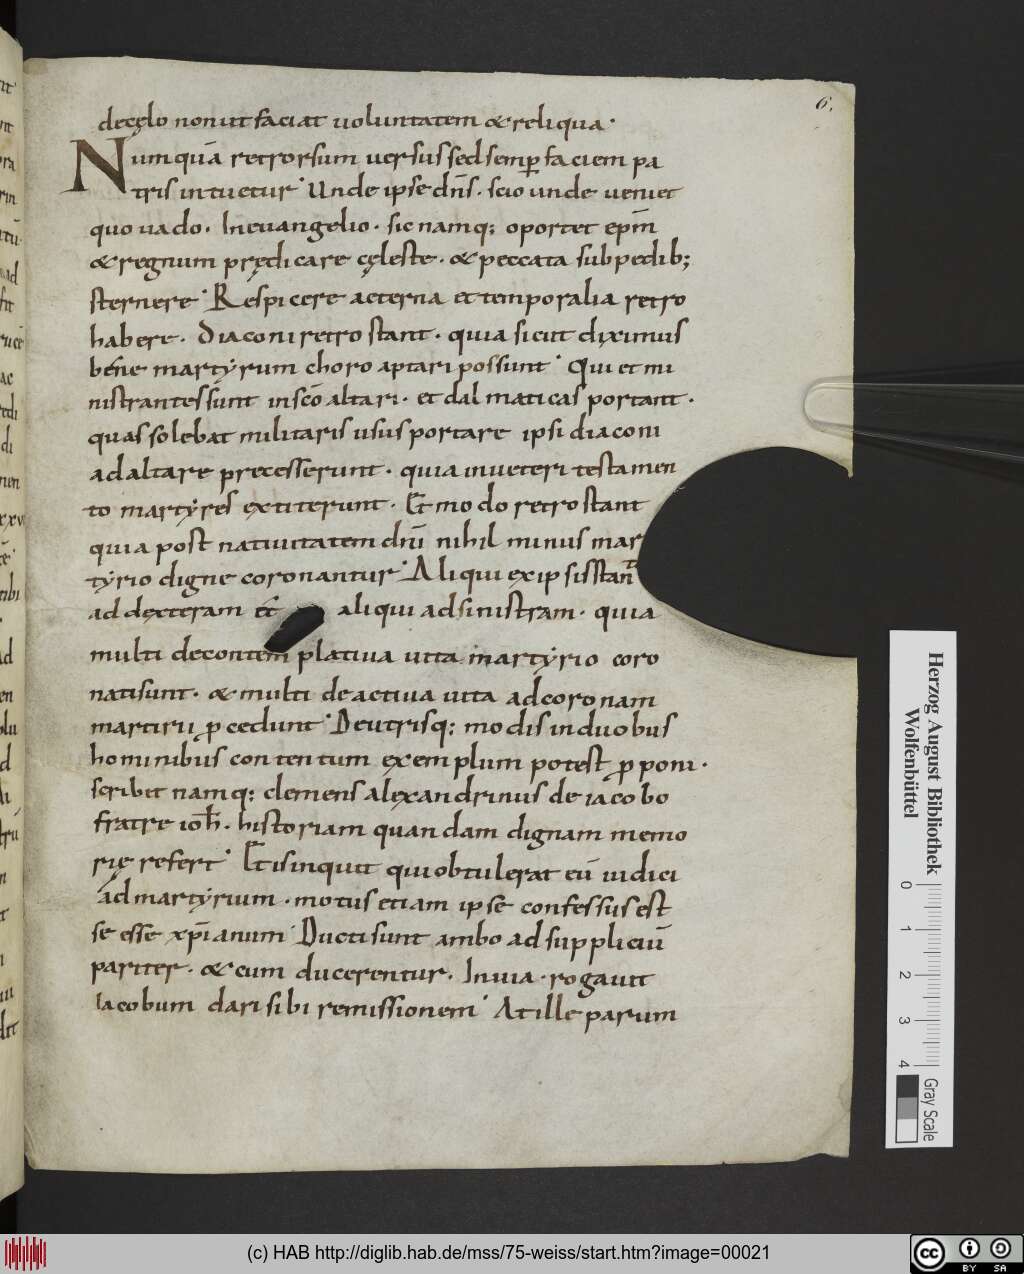 6.
decęlo non ut faciat voluntatem & reliqua.
Numquā retrorsum versus sed semꝑ faciem pa
tris intuetur. Unde ipse dn̄s. scio unde venit et
quo vado. In evangelio. sic namq; oportet ep̄m
& regnum prędicare cęleste. & peccata sub pedib;
sternere. Respicere aeterna et temporalia retro
habere. Diaconi retro stant. quia sicut diximus
bene martyrum choro aptari possunt. Qui et mi
nistrantes sunt in sc̄o altari. et dalmaticas portant.
quas solebat militaris usus portare ipsi diaconi
ad altare precesserunt. quia in veteri testamen
to martyres extiterunt. Et modo retro stant
quia post nativitatem dn̄i nihil minus mar
tyrio digne coronantur. Aliqui ex ipsis stant
ad dexteram et aliqui ad sinistram. quia
multi de contemplativa vita martyrio coro
nati sunt. & multi de activa vita ad coronam
martirii ꝓcedunt. De utrisq; modis in duobus
hominibus contentum exemplum potest ꝓponi.
scribit namq; clemens alexandrinus de iacobo
fratre ioh̄. historiam quandam dignam memo
rię refert. Et is inquit qui obtulerat eū iudici
ad martyrium. motus etiam ipse confessus est
se esse xp̄ianum. Ducti sunt ambo ad suppliciū
pariter. & cum ducerentur. In via. rogavit
Iacobum dari sibi remissionem. At ille parum
Herzog August Bibliothek
Wolfenbüttel
0 1 2 3 4
Gray Scale
(c) HAB http://diglib.hab.de/mss/75-weiss/start.htm?image=00021
cc BY SA